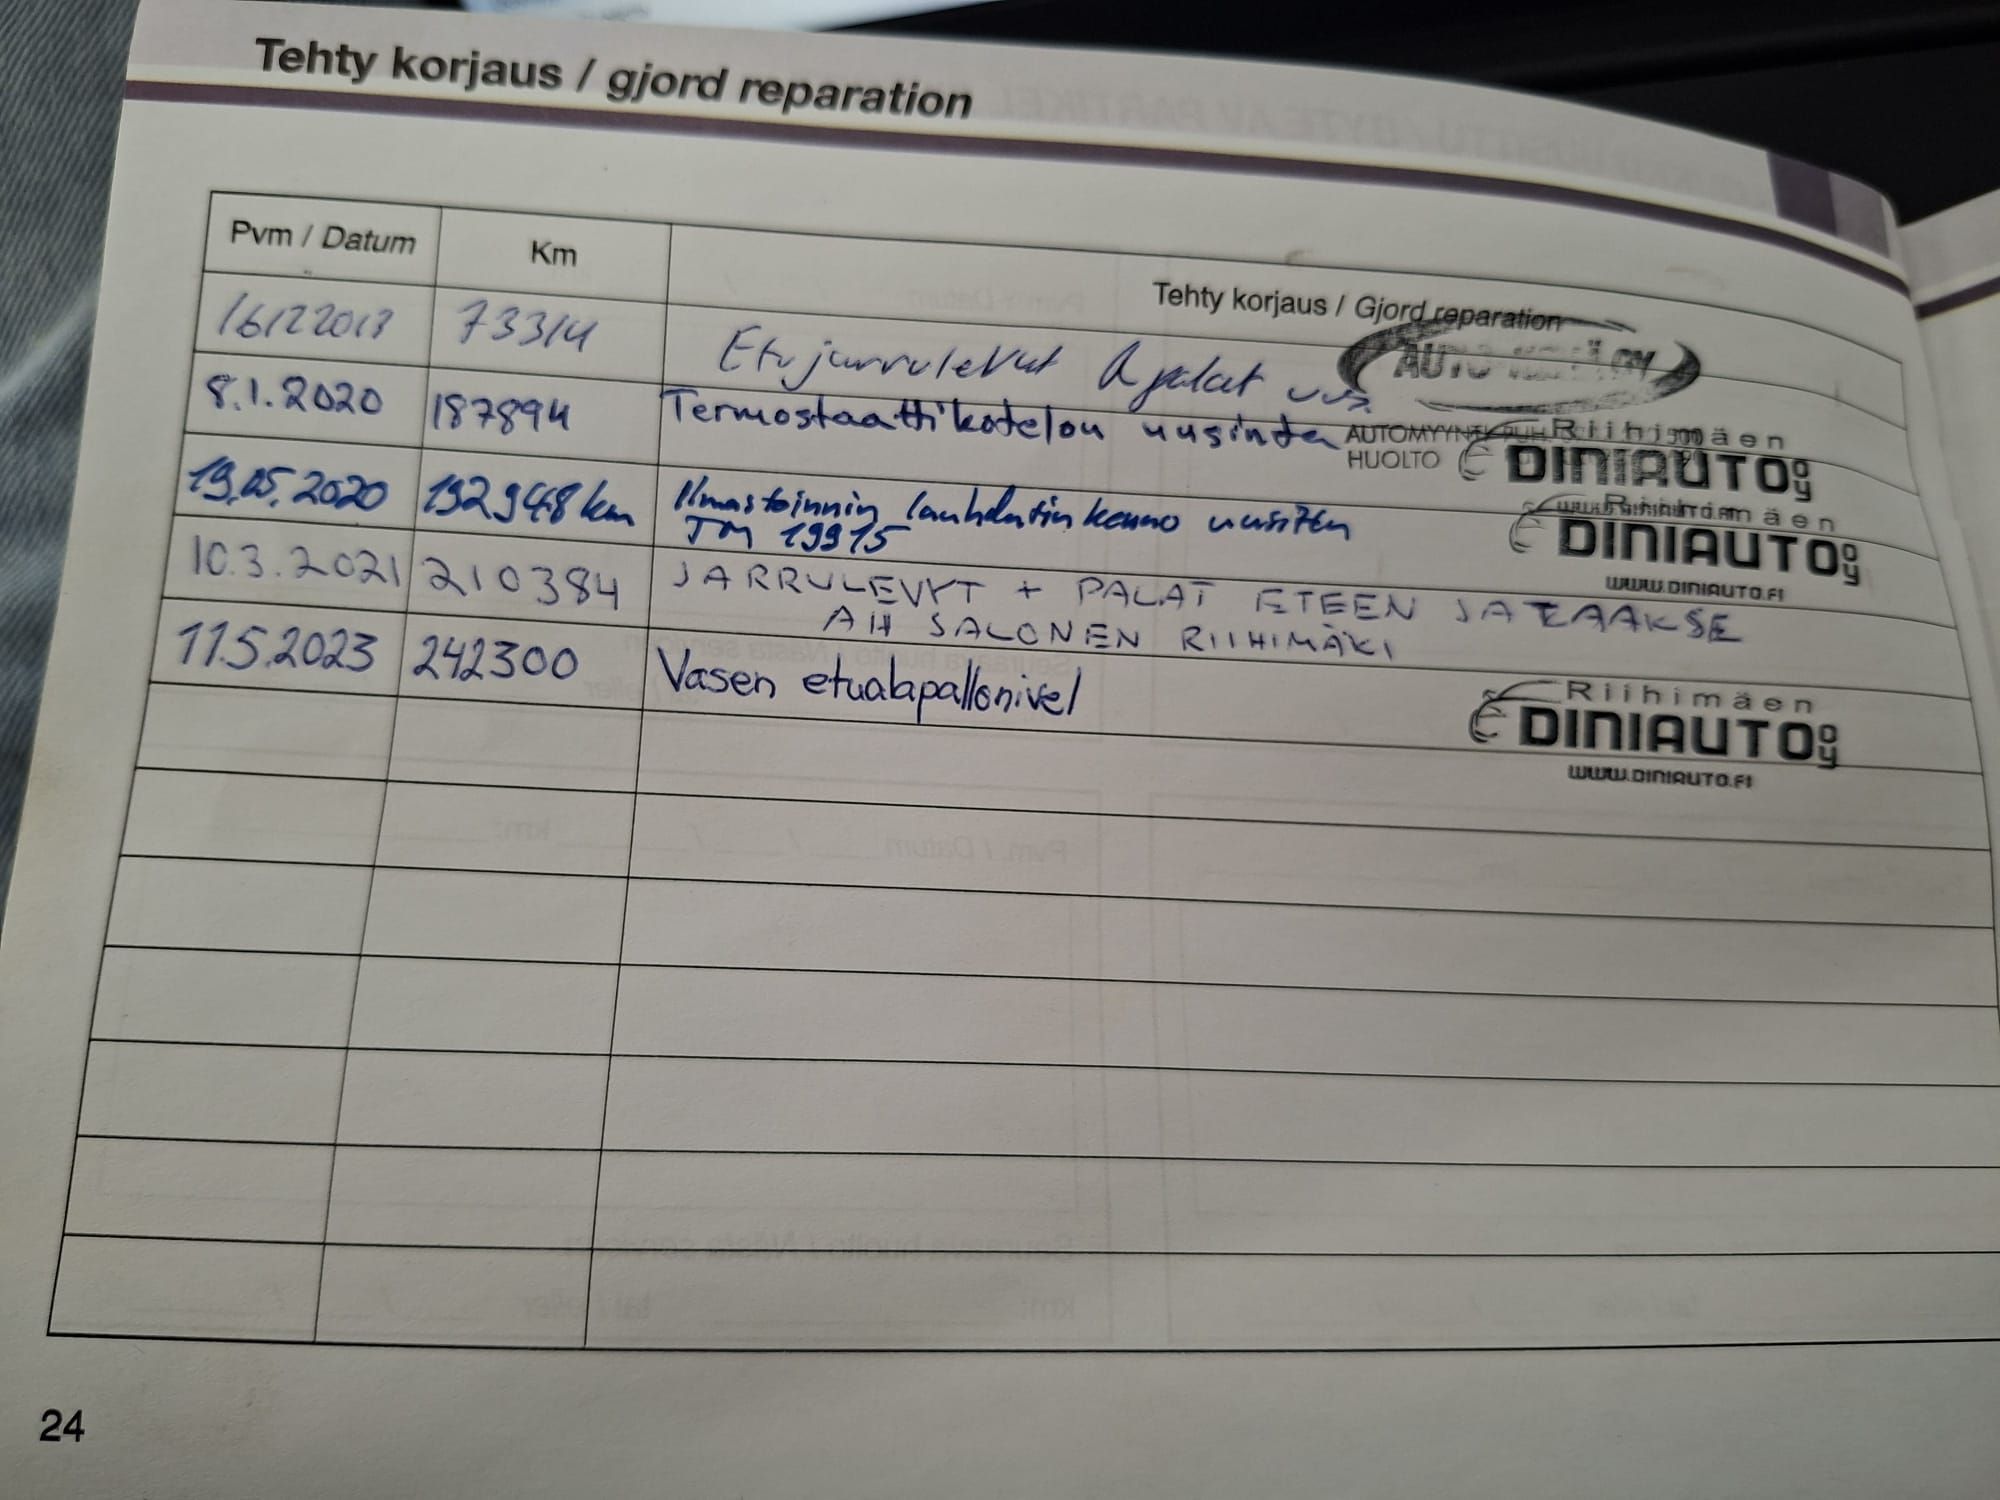 Tehty korjaus / gjord reparation
Pvm / Datum Km Tehty korjaus / Gjord reparation
16122013 73314 Etujarrulevyt & palat uus.
AUTO OY
8.1.2020 187894 Termostaattikotelon uusinta
AUTOMYYNTI
HUOLTO
Riihimäen
DINIAUTO OY
19.05.2020 192948 km Ilmastoinnin lauhdutinkenno uusittu
TM 19915
Riihimäen
DINIAUTO OY
WWW.DINIAUTO.FI
10.3.2021 210384 JARRULEVYT + PALAT ETEEN JA TAAKSE
AH SALONEN RIIHIMÄKI
11.5.2023 242300 Vasen etualapallonivel
Riihimäen
DINIAUTO OY
WWW.DINIAUTO.FI
24